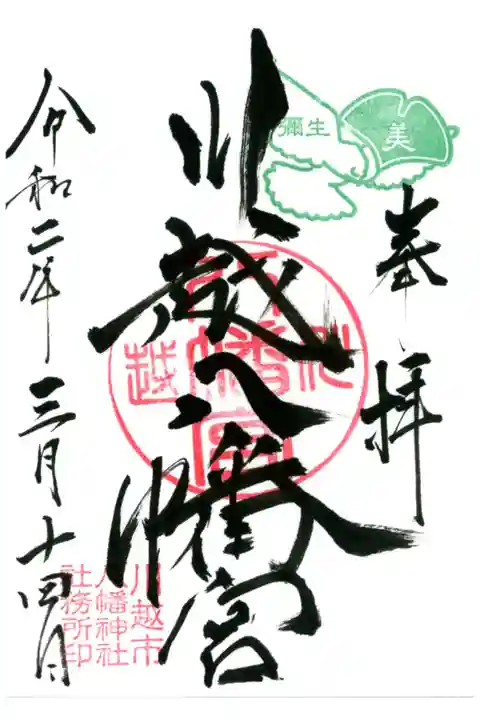 奉拝
川越八幡宮
令和二年三月十四日
彌生
美
川越八幡宮
川越市
八幡神社
社務所印